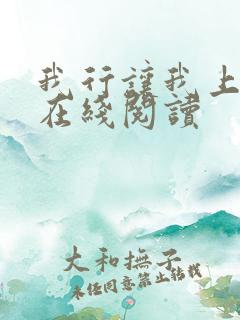 我行讓我上
在綫閱讀
大和撫子
未经同意禁止转载